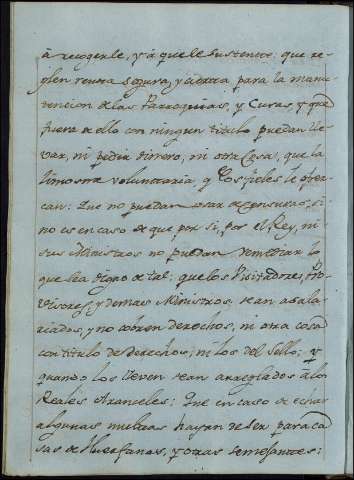 à recogerle, y à que le sustente: que se
den renta segura, y cierta para la manu-
tencion de las Parroquias, y Curas y que
fuera de ello con ningun titulo puedan lle-
var, ni pedir dinero, ni otra cosa, que la
limosna voluntaria q los fieles le ofrez-
can: Que no puedan usar de censuras, si
no es en caso de que por si, por el Rey, ni
sus Ministros no puedan remediar lo
que sea digno de tal: que los Visitadores, Pro-
visores, y demas Ministros sean asala-
riados, y no cobren derechos, ni otra cosa
con titulo de derechos, ni los del sello: y
quando los lleven sean arreglados à los
Reales Aranceles: Que en caso de echar
algunas multas hayan de ser para ca-
sas de Huerfanos, y otras semejantes: